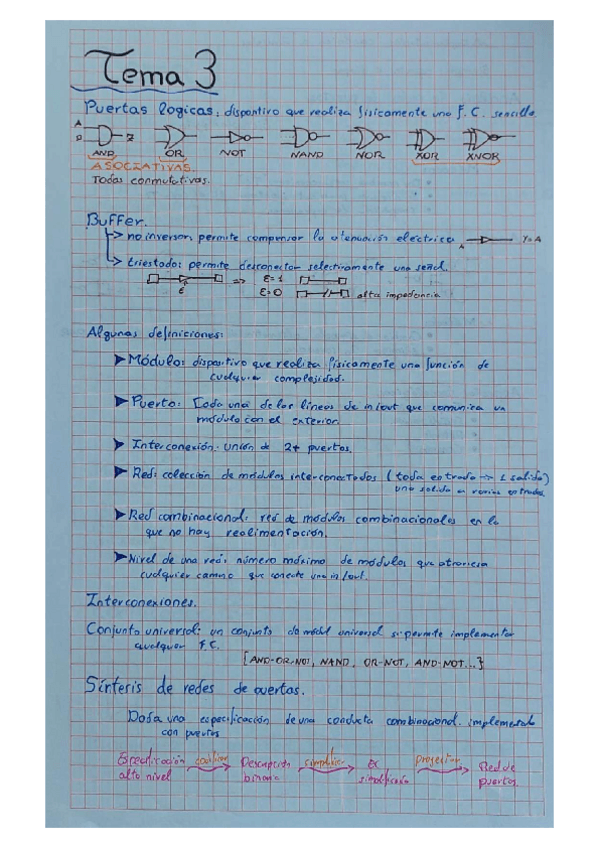 Tema 3
Puertas logicas: dispositivo que realiza fisicamente una F.C. sencilla.
A
Z
AND OR NOT NAND NOR XOR XNOR
ASOCIATIVAS.
Todas conmutativas.
Buffer.
no inversor, permite compensar la atenuación electrica A Y=A
triestado: permite desconectar selectivamente una señal.
E => E=1
E=0 alta impedancia
Algunas definiciones:
Módulo: dispositivo que realiza fisicamente una función de
cualquier complejidad.
Puerto: Cada una de las lineas de in/out que comunica un
módulo con el exterior.
Interconexión: unión de 2+ puertos.
Red: colección de módulos interconectados (toda entrada → 1 salida)
una salida en varias entradas
Red combinacional: red de modulos combinacionales en la
que no hay realimentación.
Nivel de una red: número máximo de módulos que atraviesa
cualquier camino que conecte una in/out.
Interconexiones.
Conjunto universal: un conjunto de módul universal si permite implementar
cualquier F.C.
{AND-OR-NOT, NAND, OR-NOT, AND-NOT...}
Síntesis de redes de puertas.
Dada una especificación de una conducta combinacional. implementarla
con puertas
Especificación codificar Descripción simplificar Ex proyectar Red de
alto nivel binaria simplificada puertas.